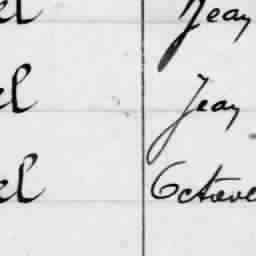 el Jean
el Jean
el Octave